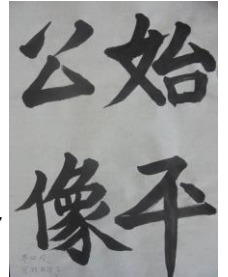 始平
公像